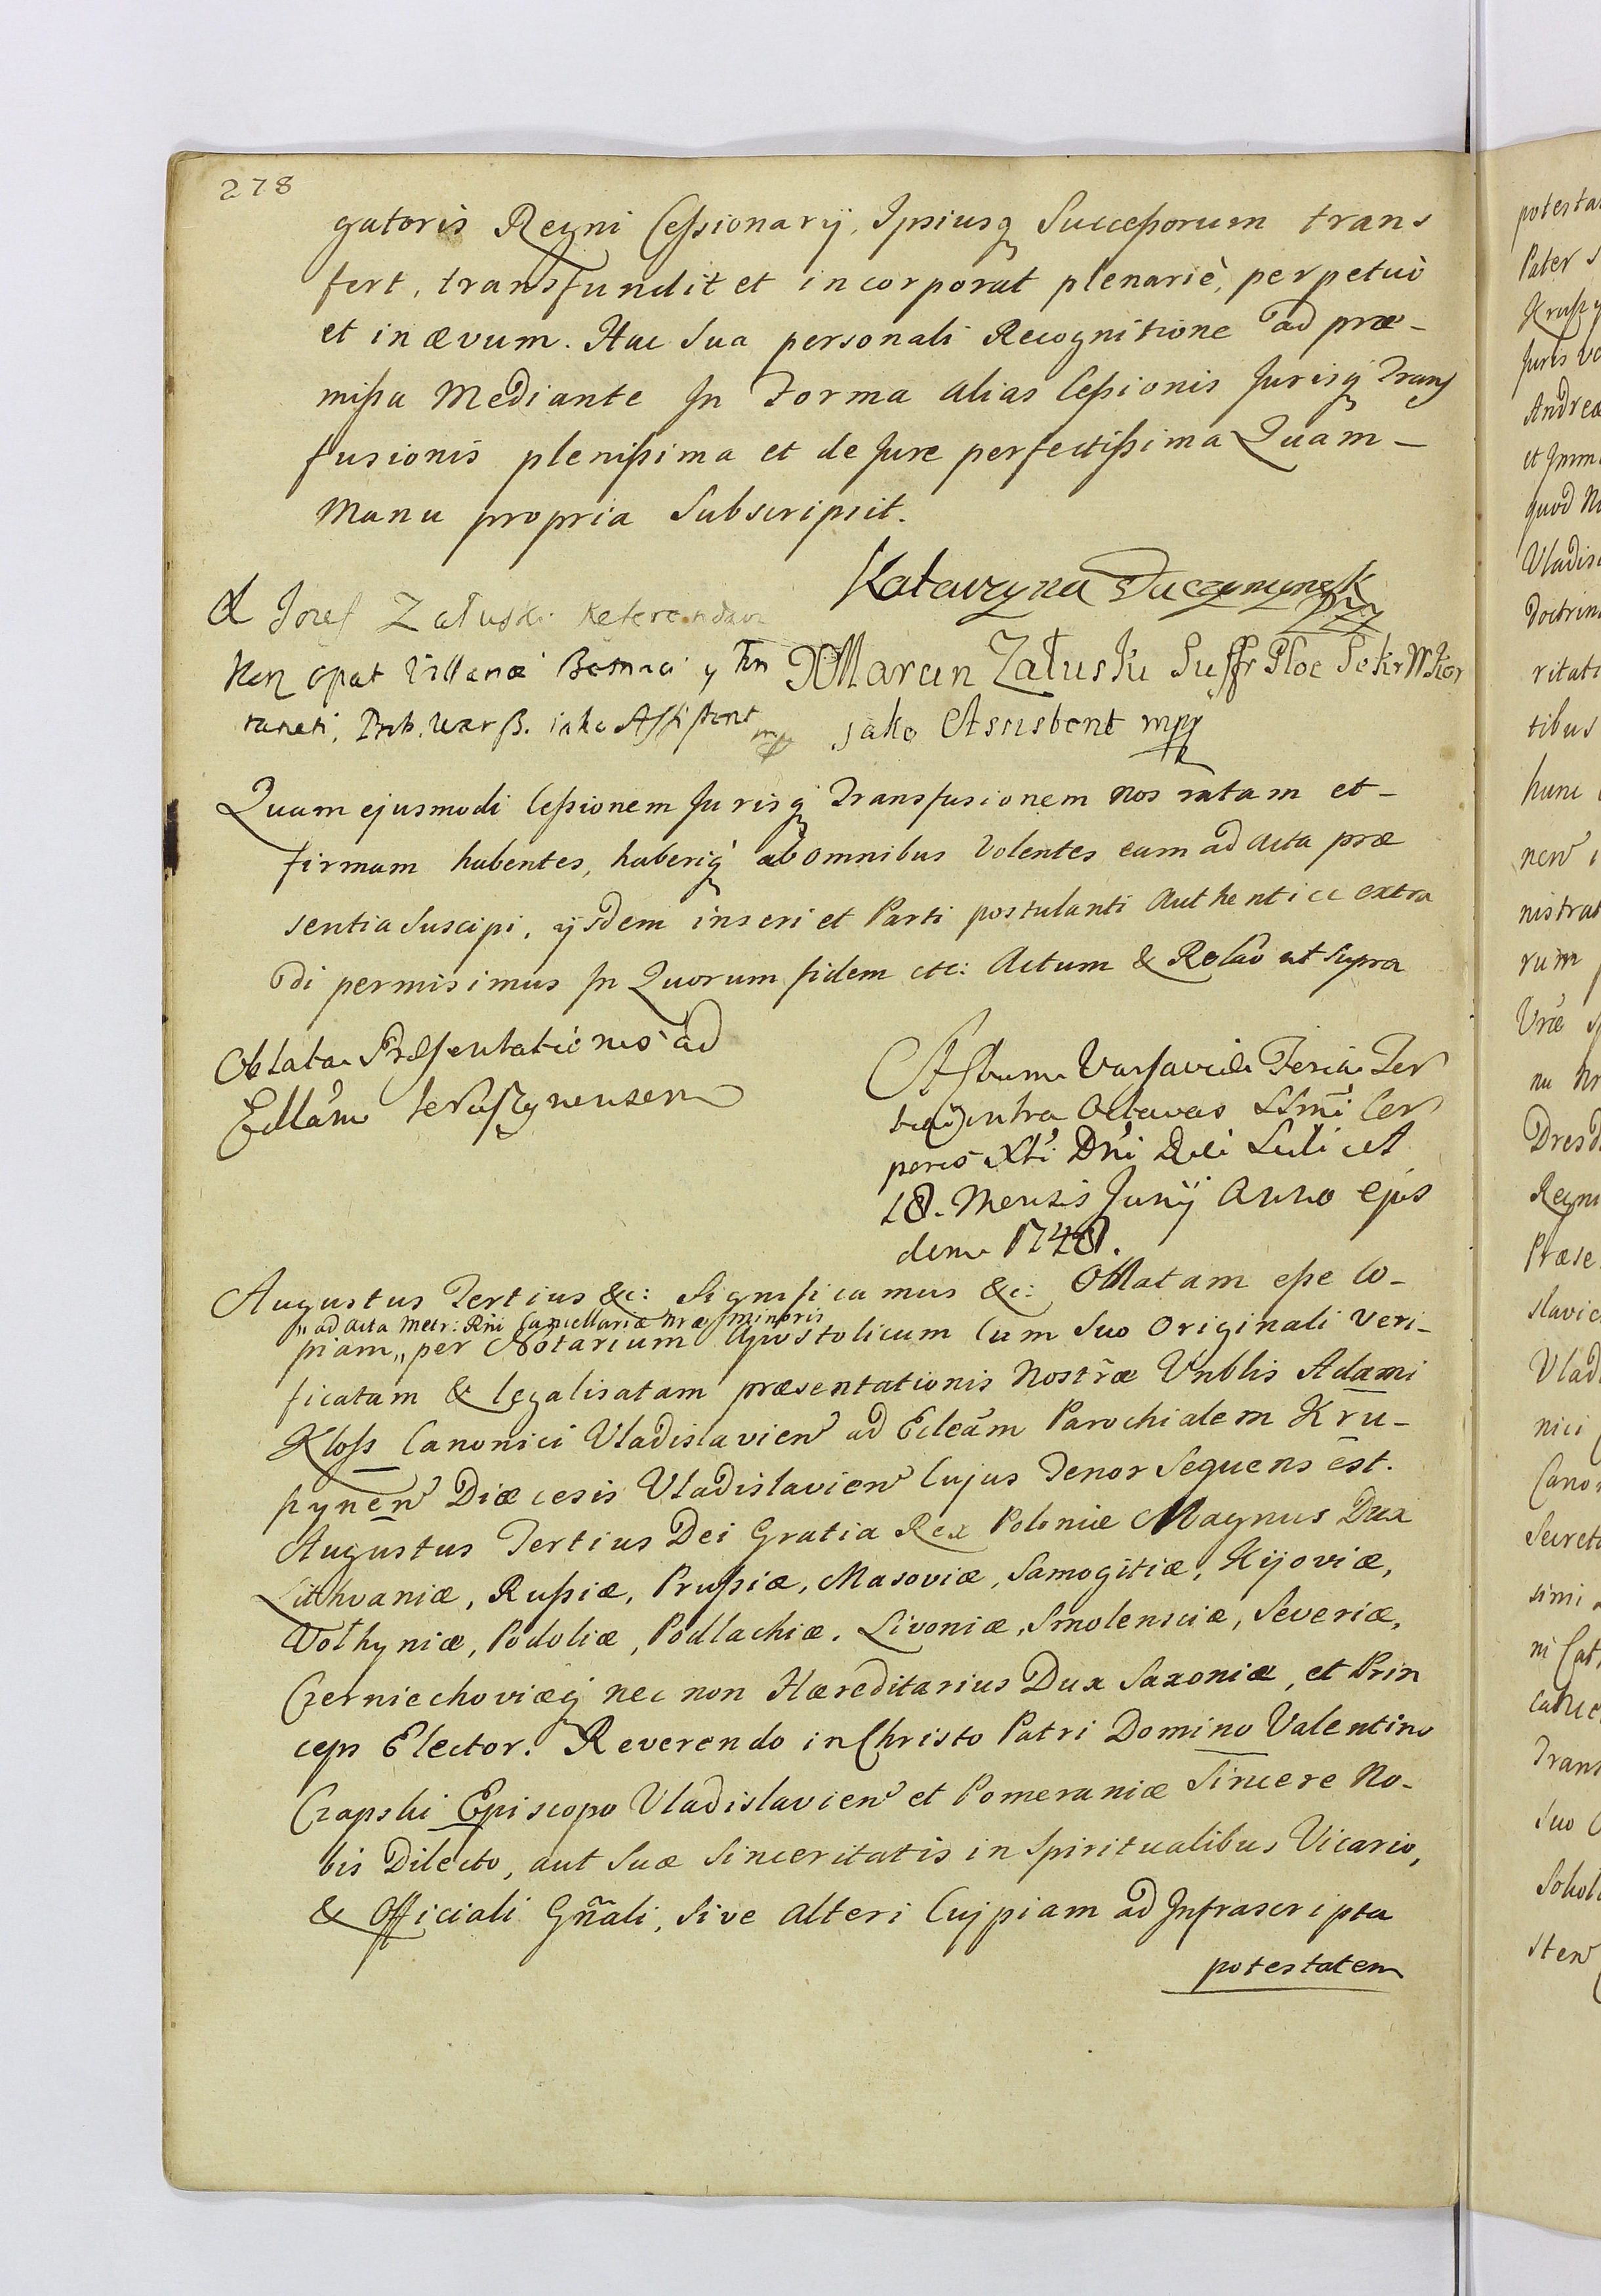 278
gatoris Regni Cessionarij, Ipsiusq Successorum trans
fert, transfundit et incorporat plenariè, perpetuò
et in ævum. Hac Sua personali Recognitione ad præ-
missa Mediante In Forma alias Cessionis Jurisq Trans
fusionis plenissima et de Jure perfectissima Quam-
Manu propria Subscripsit.
Katarzyna
X Jozef Załuski Referendarz
Kor Opat
jako Assistent
X Marcin Załuski Suffr Ploc Sekr W Kor
jako Assistent mpp
Quam ejusmodi Cessionem Jurisq Transfusionem Nos ratam et-
firmam habentes, haberiq ab omnibus Volentes eam ad Acta præ
sentia Suscipi, ijsdem inseri et Parti postulanti Authentice extra
di permisimus In Quorum fidem etc: Actum & Relao ut Supra
Oblata Præsentationis ad
Ecclam
Actum Varsaviæ Feria Ter
tia intra Octavas SSmi Cor
poris Xti Dni Diei Scilicet
18. Mensis Junij Anno ejus
dem 1748.
Augustus Tertius &c: Significamus &c: Oblatam esse Co-
" ad Acta Metr: Rni Cancellariæ Nræ Minoris
piam " per Notarium Apostolicum Cum Suo Originali Veri-
ficatam & legalisatam præsentationis Nostræ Vnblis Adami
Kloss Canonici Vladislavien ad Ecleam Parochialem Kru-
pynen Diæcesis Vladislavien Cujus Tenor Sequens est.
Augustus Tertius Dei Gratia Rex Poloniæ Magnus Dux
Lithvaniæ, Russiæ, Prussiæ, Masoviæ, Samogitiæ, Kijoviæ,
Volhyniæ, Podoliæ, Podlachiæ, Livoniæ, Smolensciæ, Severiæ,
Czerniechoviæq nec non Hæreditarius Dux Saxoniæ, et Prin
ceps Elector. Reverendo in Christo Patri Domino Valentino
Czapski Episcopo Vladislavien et Pomeraniæ Sincere No-
bis Dilecto, aut Suæ Sinceritatis in Spiritualibus Vicario,
& Officiali Gñali, Sive Alteri Cujpiam ad Infrascripta
potestatem